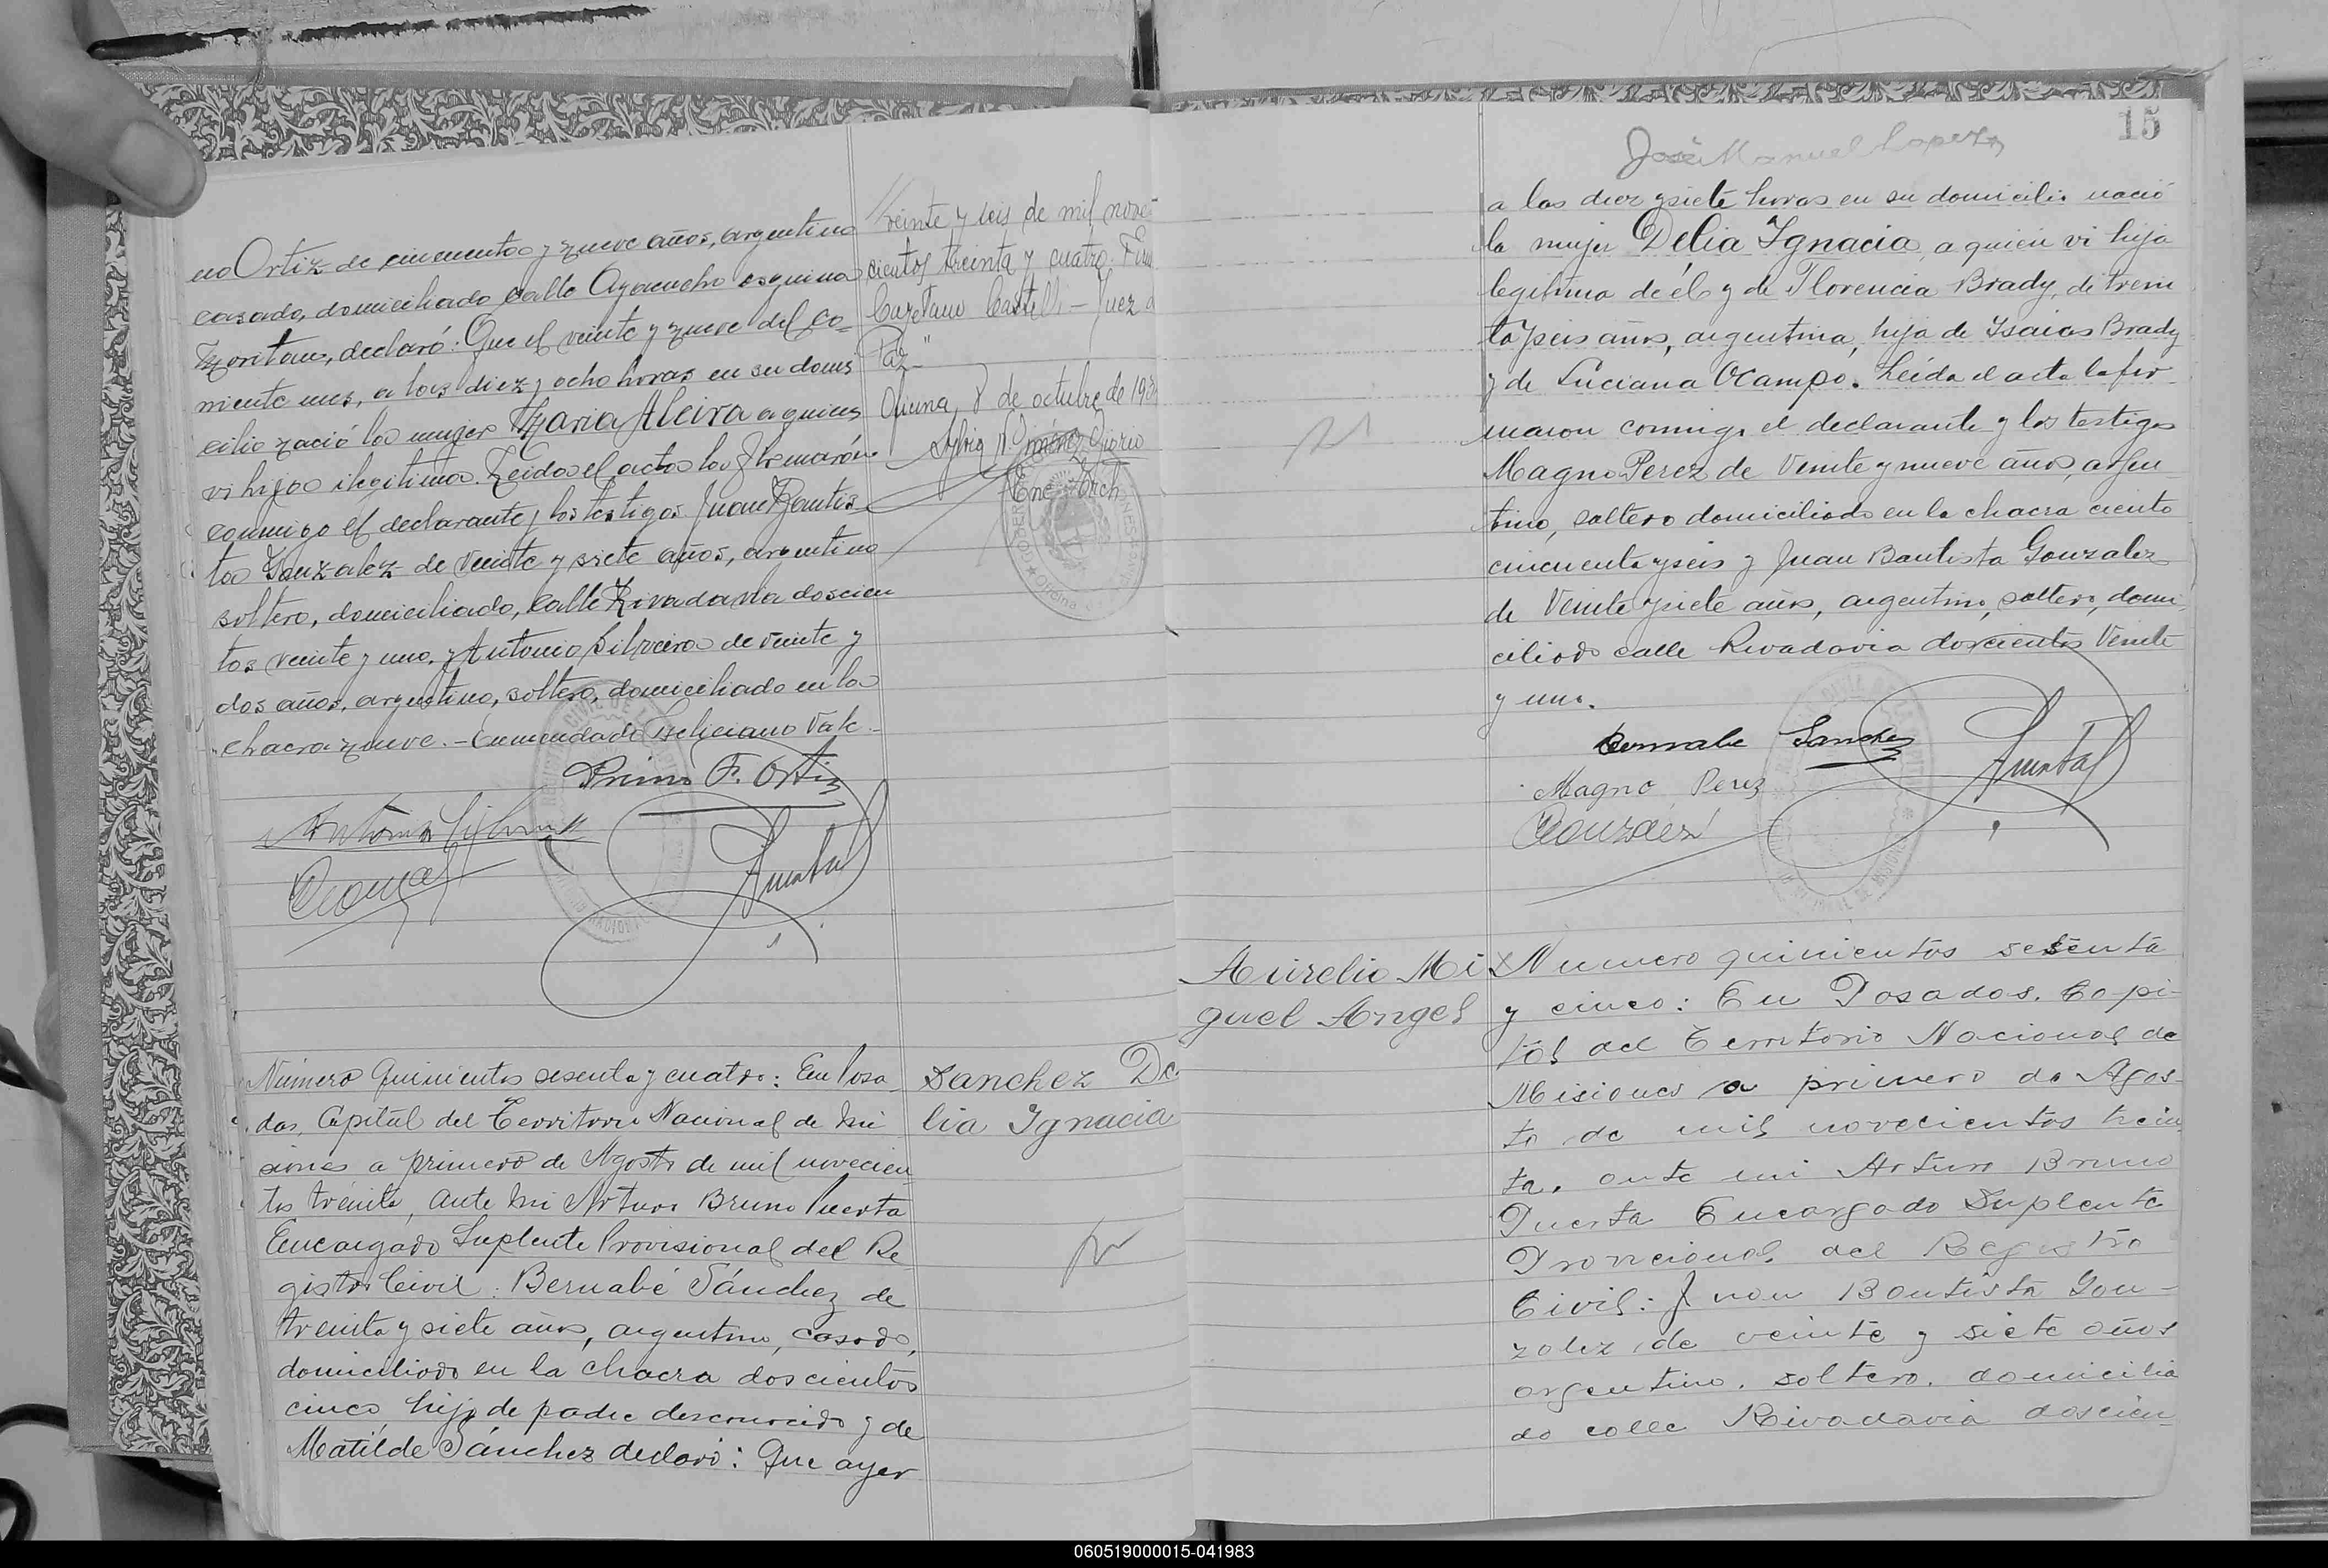 no Ortiz de cincuenta y nueve años, argentino
casado, domiciliado calle Ayacucho esquina
declaró: Que el veinte y nueve del co-
rriente mes, a las diez y ocho horas en su domi
cilio nació la mujer Maria Alcira a quien
vi hija ilegitima. Leida el acta la firmarón
conmigo el declarante y los testigos Juan Bautis
ta Gonzalez de veinte y siete años, argentino
soltero, domiciliado, calle Rivadavia doscien
tos veinte y uno, y Antonio Silveira de veinte y
dos años, argentino, soltero, domiciliado en la
chacra nueve. - Enmendado Feliciano Vale -
Primo F. Ortiz
Veinte y seis de mil nove-
cientos treinta y cuatro.
Cayetano Castelli - Juez d
Paz"
Oficina, 8 de octubre de 193
Enc. Arch
Número Quinientos sesenta y cuatro: En Posa
das, Capital del Territorio Nacional de Mi
siones a primero de Agosto de mil novecien
tos treinta, ante mi Arturo Bruno Puerta
Encargado Suplente Provisional del Re
gistro Civil: Bernabé Sánchez de
treinta y siete años, argentino, casado,
domiciliado en la chacra doscientos
cinco, hijo de padre desconocido y de
Matilde Sánchez declaró: Que ayer
Sanchez De
lia Ignacia
15
José Manuel Lopez
a las diez y siete horas en su domicilio nació
la mujer Delia Ignacia, a quien vi hija
legitima de él y de Florencia Brady, de trein
ta y seis años, argentina, hija de Isaias Brady
y de Luciana Ocampo. Leida el acta la fir
maron conmigo el declarante y los testigos
Magno Perez de veinte y nueve años, argen
tino, soltero domiciliado en la chacra ciento
cincuenta y seis y Juan Bautista Gonzalez
de veinte y siete años, argentino, soltero, domi
ciliado calle Rivadavia doscientos veinte
y uno.
Bernabe Sanchez
Magno Perez
Gonzalez
Aurelio Mi
guel Angel
x Numero quinientos sesenta
y cinco: En Posadas, Capi-
tal del Territorio Nacional de
Misiones a primero de Agos-
to de mil novecientos trein
ta, ante mi Arturo Bruno
Puerta Encargado Suplente
Provicional del Registro
Civil: Juan Bautista Gon-
zalez de veinte y siete años
argentino, soltero, domicilia
do calle Rivadavia doscien-
060519000015-041983